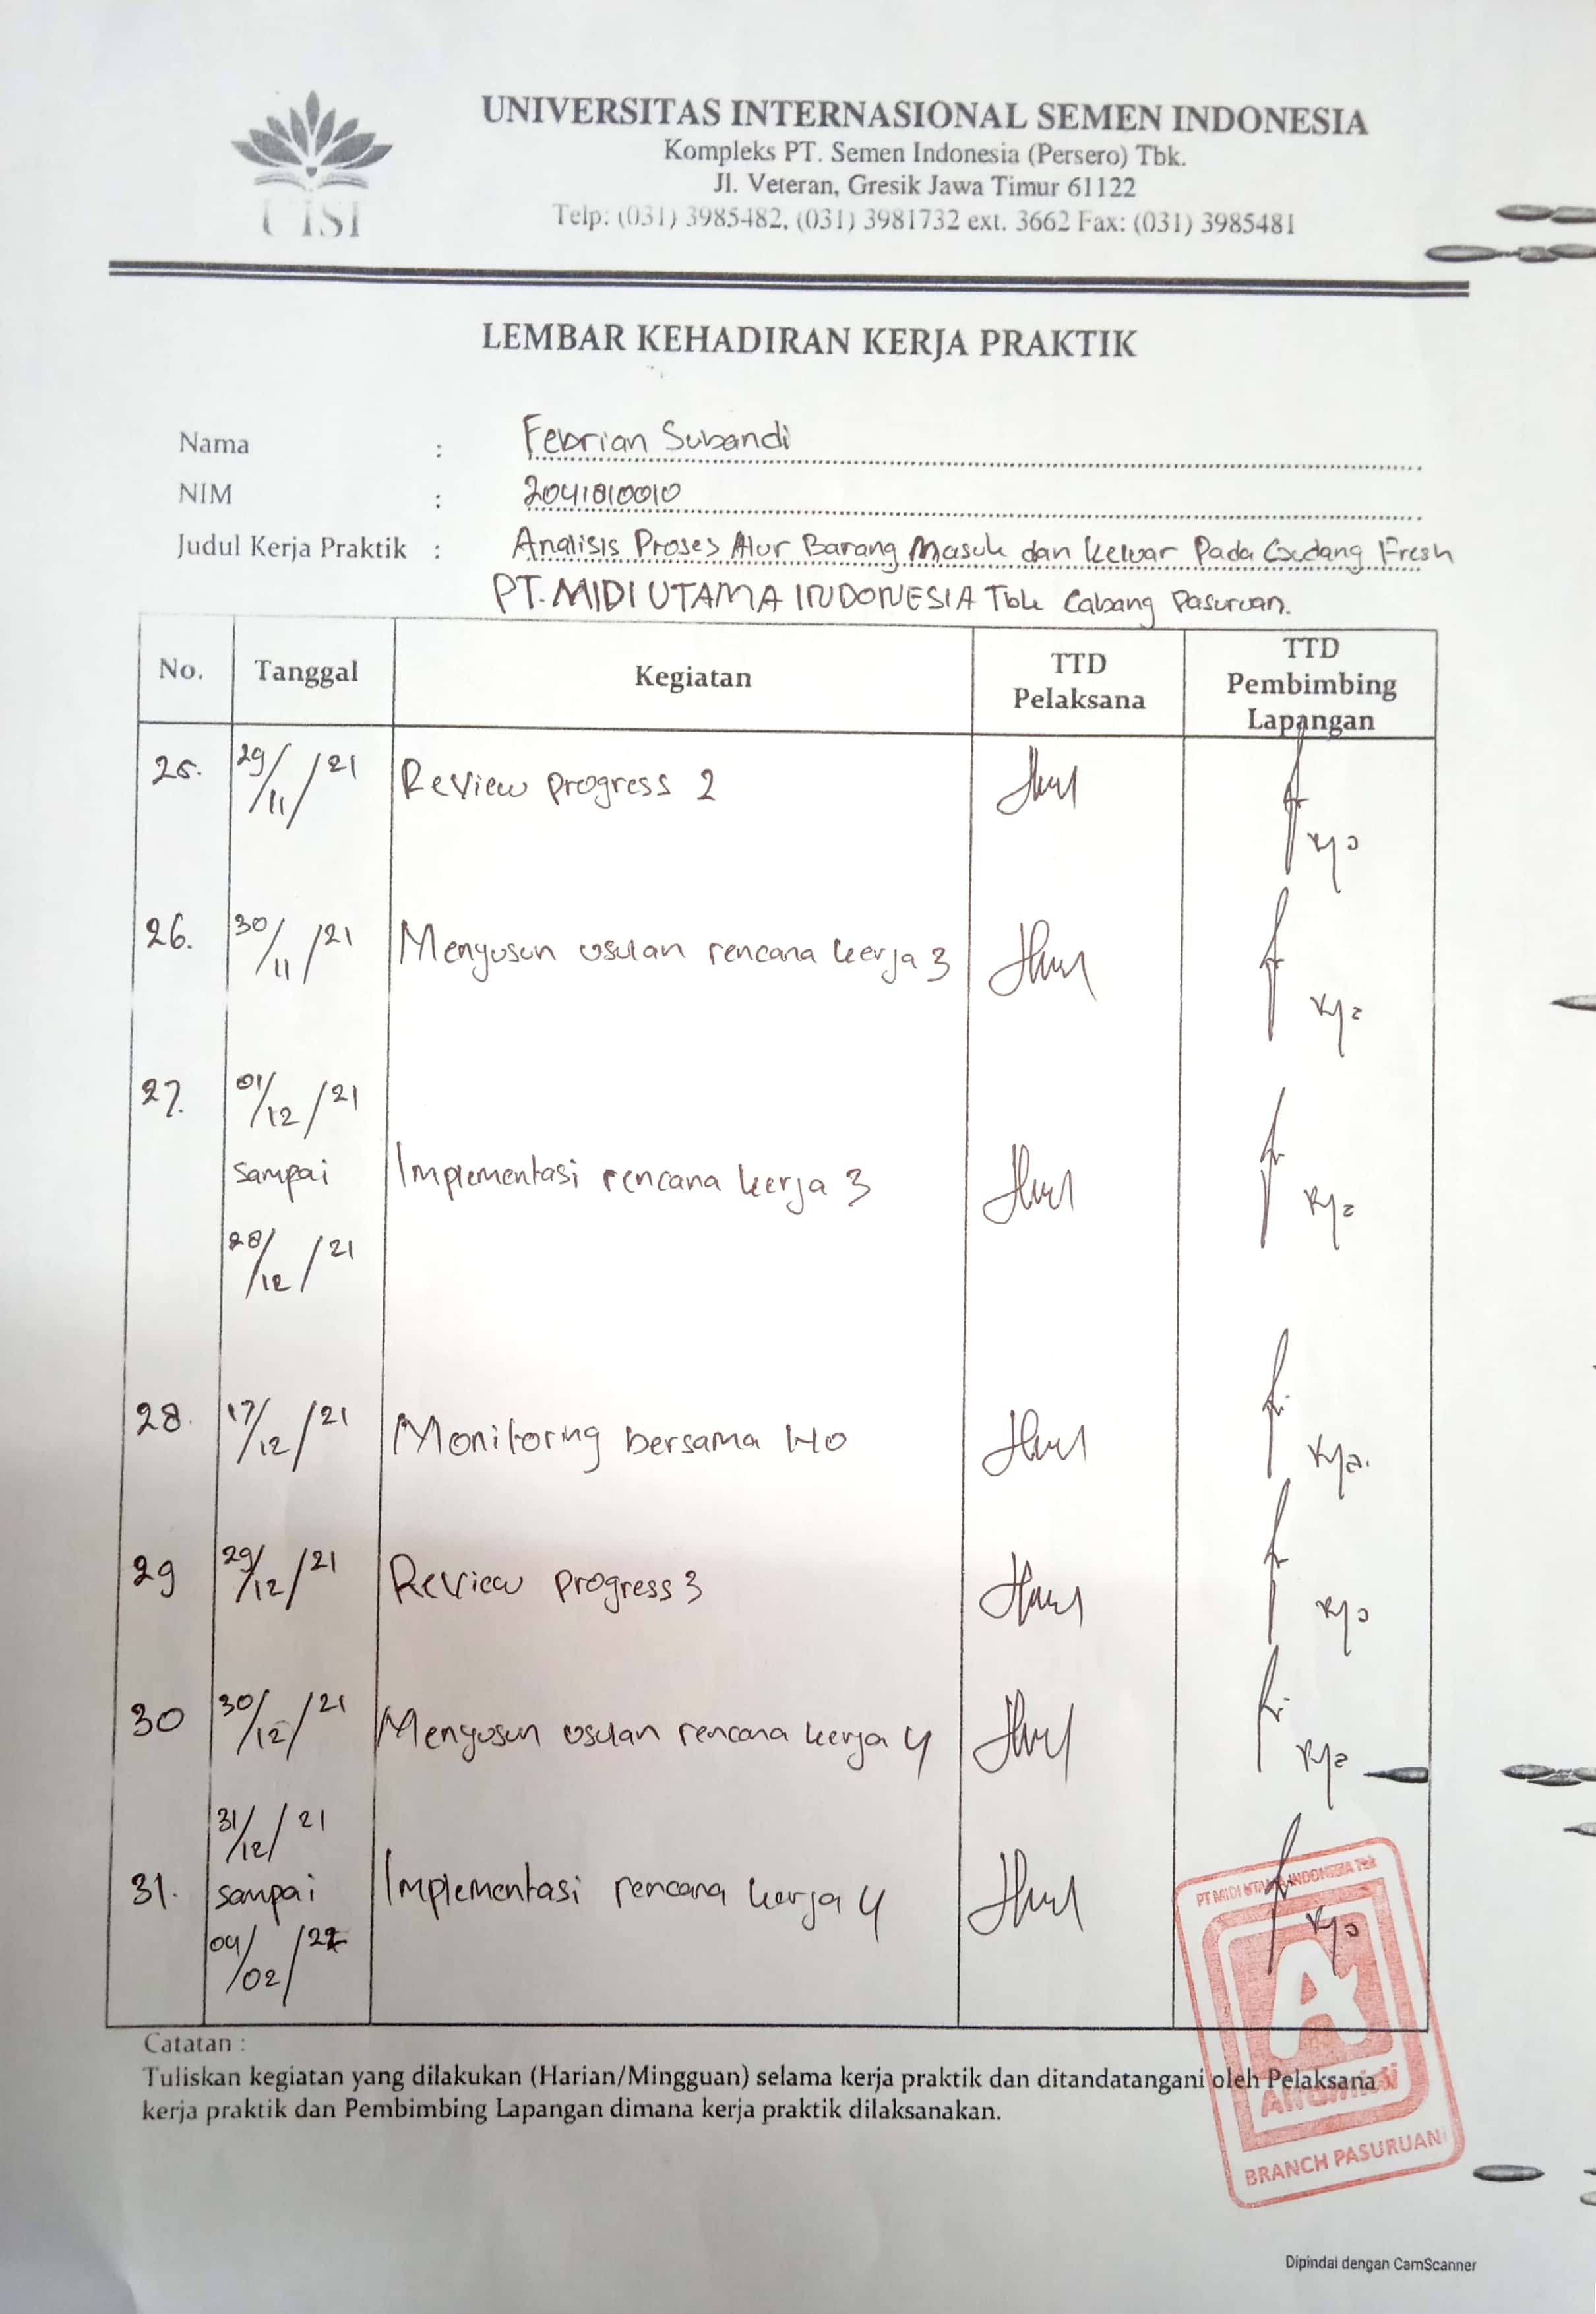 UNIVERSITAS INTERNASIONAL SEMEN INDONESIA
Kompleks PT. Semen Indonesia (Persero) Tbk.
Jl. Veteran, Gresik Jawa Timur 61122
Telp: (031) 3985482, (031) 3981732 ext. 3662 Fax: (031) 3985481
UISI
LEMBAR KEHADIRAN KERJA PRAKTIK
Nama : Febrian Subandi
NIM : 2041810010
Judul Kerja Praktik : Analisis Proses Alur Barang Masuk dan Keluar Pada Gudang Fresh
PT. MIDI UTAMA INDONESIA Tbk Cabang Pasuruan.
No. Tanggal Kegiatan TTD Pelaksana TTD Pembimbing Lapangan
25. 29/11/21 Review progress 2
26. 30/11/21 Menyusun usulan rencana kerja 3
27. 01/12/21
sampai Implementasi rencana kerja 3
28/12/21
28. 17/12/21 Monitoring bersama HO
29 29/12/21 Review progress 3
30 30/12/21 Menyusun usulan rencana kerja 4
31/12/21
31. sampai Implementasi rencana kerja 4
04/02/22
PT MIDI UTAMA INDONESIA Tbk
Alfamidi
BRANCH PASURUAN
Catatan :
Tuliskan kegiatan yang dilakukan (Harian/Mingguan) selama kerja praktik dan ditandatangani oleh Pelaksana
kerja praktik dan Pembimbing Lapangan dimana kerja praktik dilaksanakan.
Dipindai dengan CamScanner